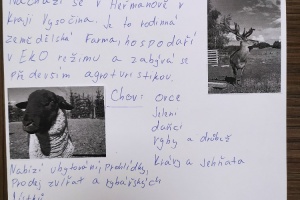 Nachází se v Heřmanově v
Kraji Vysočina. Je to rodinná
zemědělská farma, hospodaří
v EKO režimu a zabývá se
především agroturistikou.
Chov: ovce
jeleni
daňci
ryby a drůbež
krávy a selata
Nabízí ubytování, prohlídky,
Prodej zvířat a rybářských
lístků